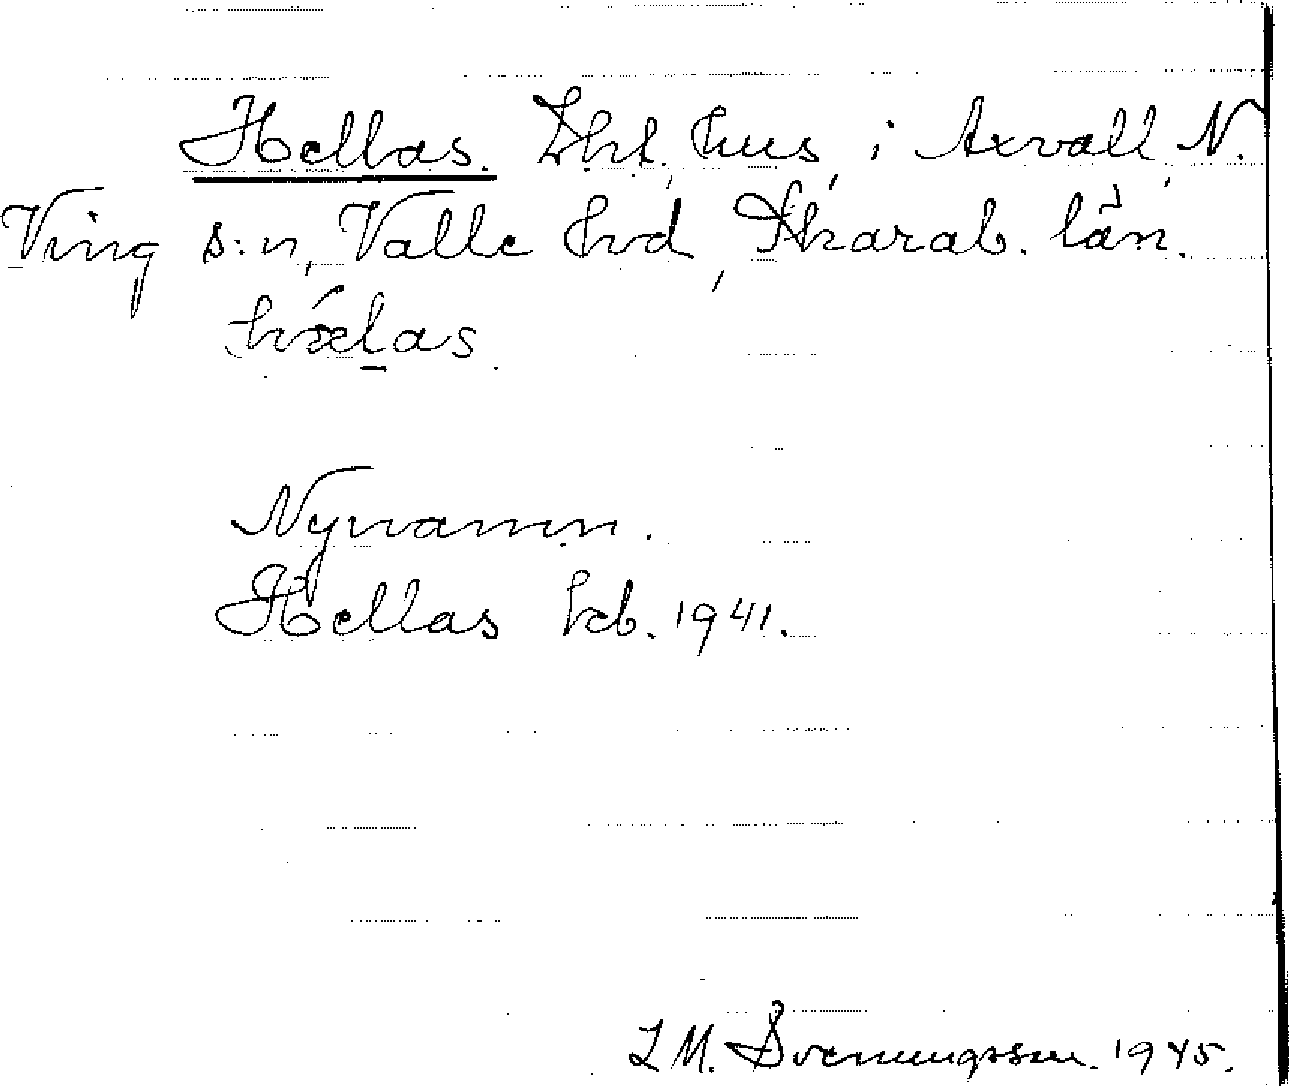 Hellas. Lht, hus, i Axvall, N.
Ving s:n, Valle hrd, Skarab. län.
hǽlas
Nynamn.
Hellas Lcb. 1941.
L M. Svenungsson. 1945.